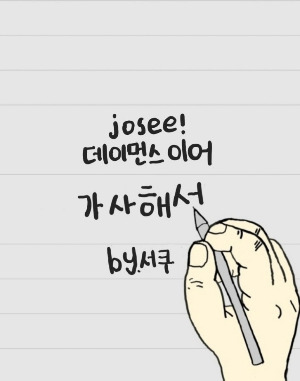 josee!
데이먼스이어
가사해서
by.서쿠